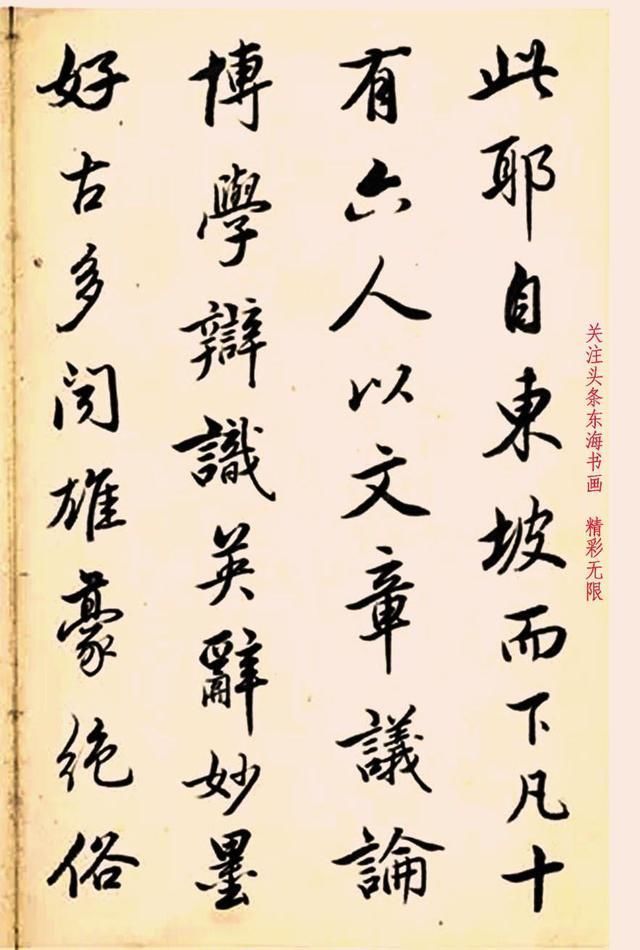 此耶自東坡而下凡十
有六人以文章議論
博學辯識英辭妙墨
好古多聞雄豪絶俗
关注头条东海书画 精彩无限